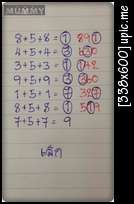 MUMMY
8+5+8 = 1 891
4+5+4 = 3 630
3+5+3 = 1 142
9+5+9 = 3 360
1+5+1 = 7 327
8+5+8 = 1 519
7+5+7 = 9
[338x600] upic.me